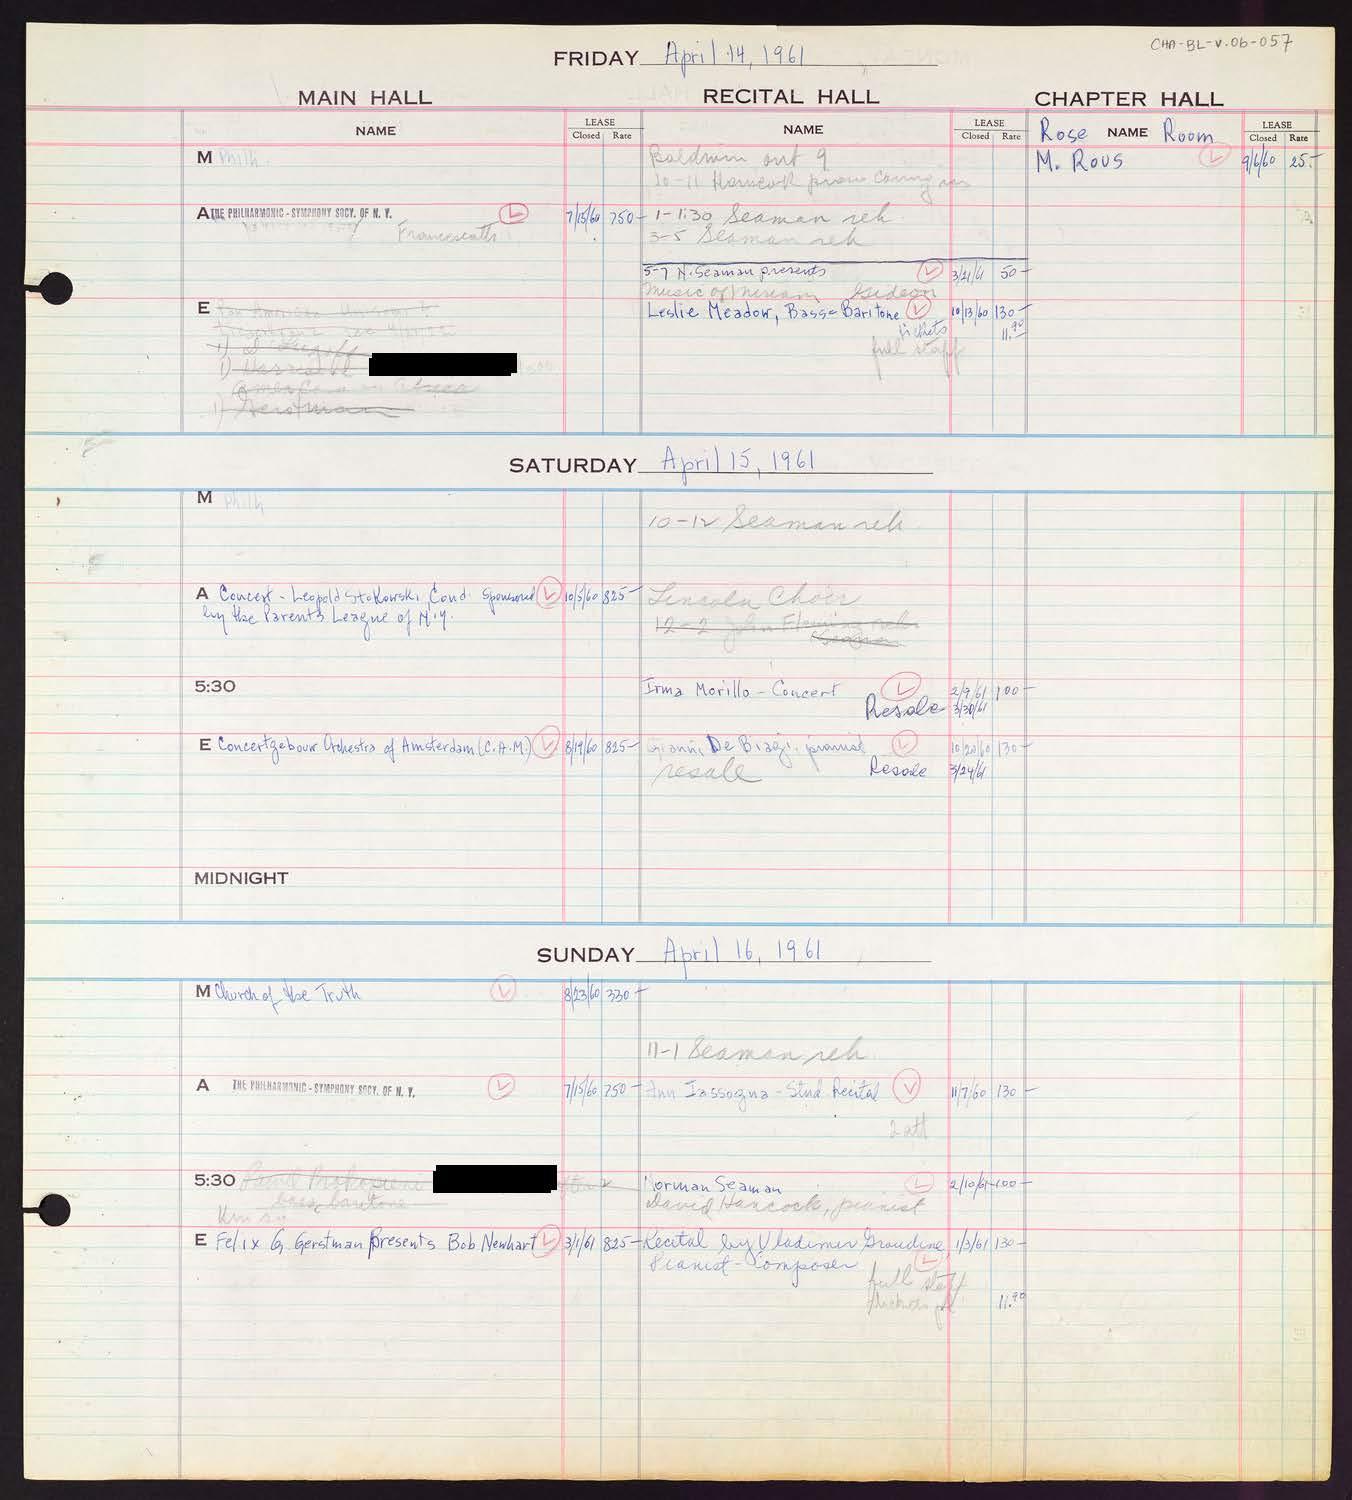 CHA-BL-V.06-057
FRIDAY April 14, 1961
MAIN HALL
RECITAL HALL
CHAPTER HALL
NAME
LEASE
Closed Rate
NAME
LEASE
Closed Rate
Rose NAME Room
LEASE
Closed Rate
M Philh.
Baldwin out 9
10-11 Hancock piano coming in
M. Rous 9/6/60 25.-
A THE PHILHARMONIC-SYMPHONY SOCY. OF N. Y. 7/15/60 750-
Francescatti
1-1:30 Seaman reh
3-5 Seaman reh
5-7 N. Seaman presents 3/21/61 50-
Music of Miriam Gideon
E
Leslie Meadow, Bass-Baritone 10/13/60 130-
tickets 11.90
full staff
SATURDAY April 15, 1961
M Philh
10-12 Seaman reh
A Concert - Leopold Stokowski, Cond. Sponsored 10/5/60 825-
by the Parents League of N.Y.
Lincoln Choir
12-2 John Fleming reh.
5:30
Irma Morillo - Concert 2/9/61 100-
Resale 3/30/61
E Concertgebouw Orchestra of Amsterdam (C.A.M.) 8/19/60 825-
Gianni De Biagi, pianist 10/20/60 130-
resale Resale 3/24/61
MIDNIGHT
SUNDAY April 16, 1961
M Church of the Truth 8/23/60 330-
11-1 Seaman reh
A THE PHILHARMONIC-SYMPHONY SOCY. OF N. Y. 7/15/60 750-
Ann Iassogna - Stud. Recital 11/7/60 130-
2 att
5:30
bass baritone
Norman Seaman 2/10/61 100-
David Hancock, pianist
E Felix G. Gerstman Presents Bob Newhart 3/1/61 825-
Recital by Vladimir Graudine 1/3/61 130-
Pianist-Composer
full staff
11.90